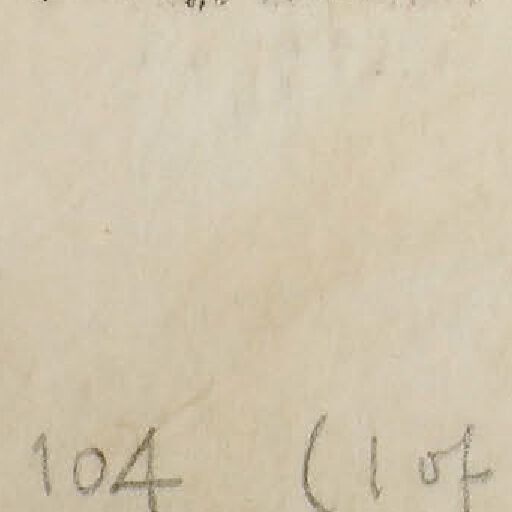 104 (1 of